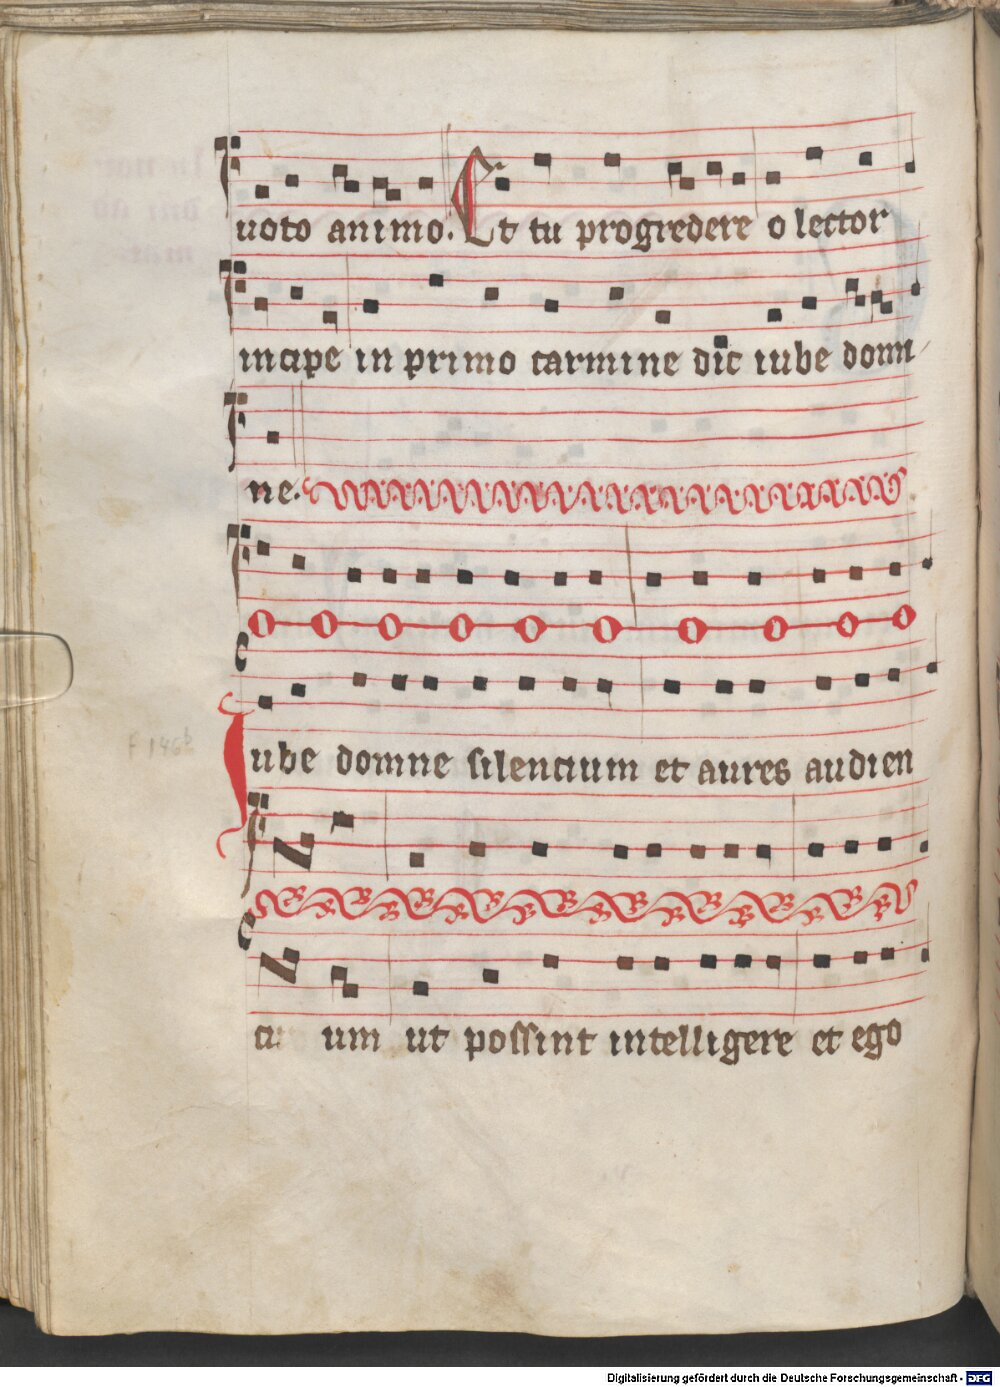 uoto animo. Et tu progredere o lector
incipe in primo carmine dic iube domi
ne.
Iube domne silencium et aures audien
ci um ut possint intelligere et ego
F 146b
Digitalisierung gefördert durch die Deutsche Forschungsgemeinschaft - DFG